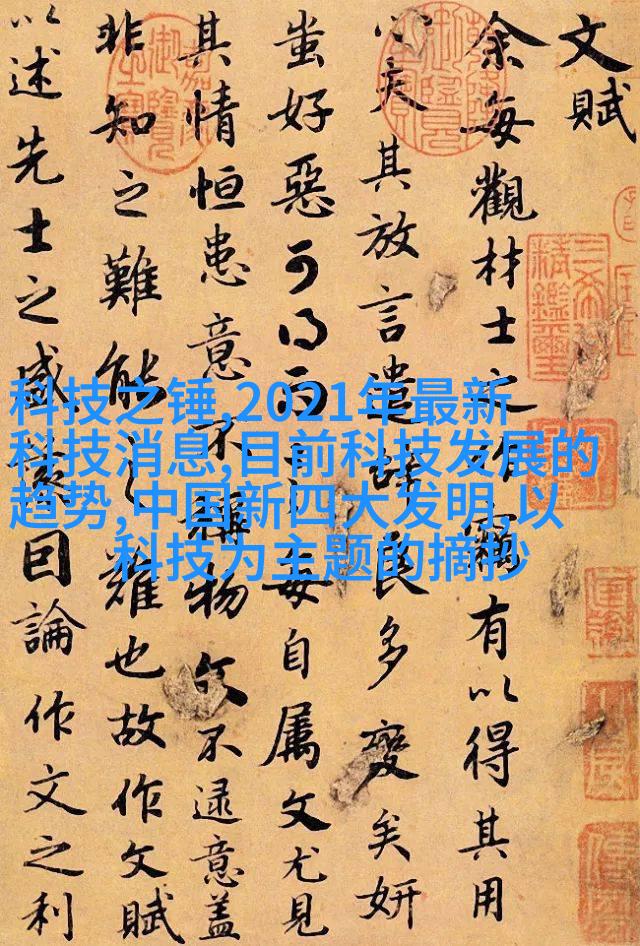 文賦
余每觀材士之作竊有以得其用
心夫其放言遣辭良多變矣妍
蚩好惡可得而言每自屬文尤見
其情恒患意不稱物文不逮意蓋
非知之難能之難也故作文賦
以述先士之盛藻因論作文之利
科技之锤,2021年最新
科技消息,目前科技发展的
趋势,中国新四大发明,以
科技为主题的摘抄